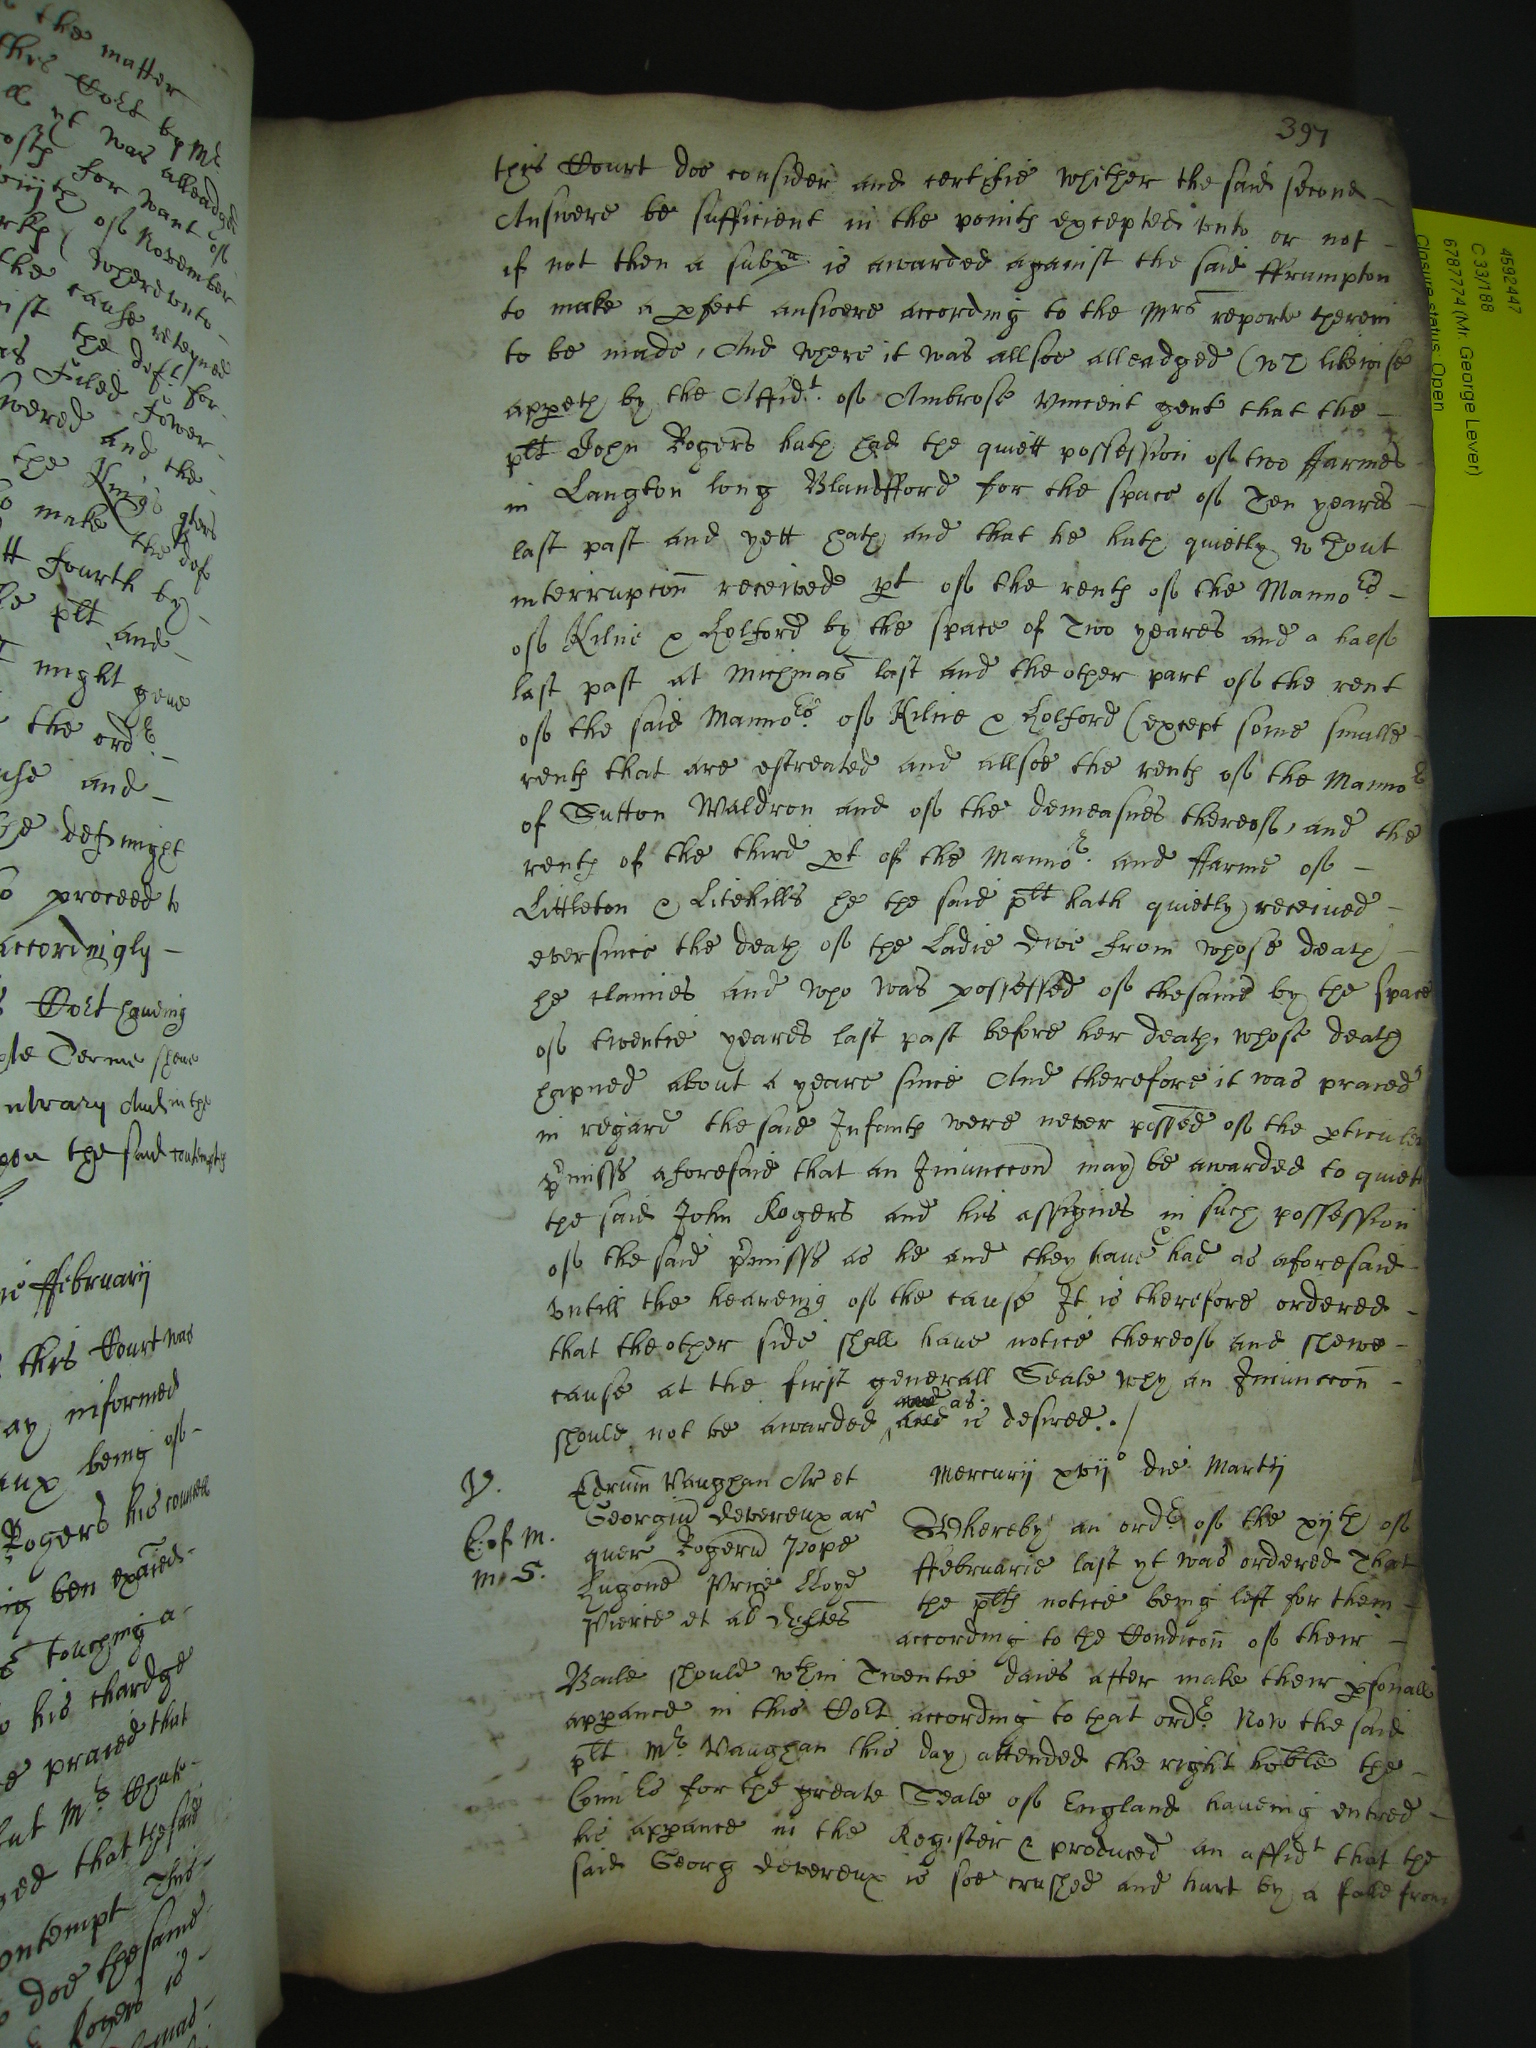 397
this Court doe consider and certifie whither the said second
Answere be sufficient in the points excepted vnto or not
if not then a subpa is awarded against the said ffrumpton
to make a pfect answere according to the Mrs reporte therein
to be made, And where it was allsoe alleadged (wch likewise
appeth by the Affidt. of Ambrose Vincent gent that the
plt John Rogers hath had the quiett possession of two ffarmes
in Langton long Blandfford for the space of Ten yeares
last past and yett hath and that he hath quietly wthout
interrupcion received pt of the rents of the Mannors
of Kilne & Holford by the space of Two yeares and a half
last past at Michmas last and the other part of the rent
of the said Mannors of Kilne & Holford (except some smalle
rents that are estreated and allsoe the rents of the Mannor
of Sutton Waldron and of the demeasnes thereof, and the
rents of the third pt of the Mannor and ffarme of
Littleton & Litehills he the said plt hath quietly received
eversince the death of the Ladie Dive from whose death
he claimes and who was possessed of thesame by the space
of twentie yeares last past before her death, whose death
hapned about a yeare since And therefore it was praied
in regard the said Infants were never possed of the pticuler
pmisss aforesaid that an Iniunccon may be awarded to quiett
the said John Rogers and his assignes in such possession
of the said pmisss as he and they haue had as aforesaid
vntill the heareing of the cause It is therefore ordered
that the other side shall haue notice thereof and shewe
cause at the first generall Seale why an Iniunccon
should not be awarded as is desired./
V. Edrum Vaughan Ar et Mercurij xvijo die Martij
Georgiu Devereux ar
quer Rogeru Pope
Hugone Price Lloyd
Pierce et al Deftes
E: of M.
M. S.
Whereby an ordr of the xijth of
ffebruarie last yt was ordered That
the plts notice being left for them
according to the Condicon of their
Baile should wthin Twentie daies after make their psonall
appance in this Cort according to that ordr Now the said
plt Mr Vaughan this day attended the right hoble the
Comrs for the greate Seale of England haueing entred
his appance in the Register & produced an affidt that the
said Georg Devereux is soe crushed and hurt by a falle from
4592447
C 33/188
6787774 (Mr. George Lever)
Closure status: Open
the matter
this Cort by Mr.
yt was alleadged
for want of
of November
wherevnto
the cause reteyned
the deft for
filed
and the
the Kings
make the def
fourth by
the plt and
might geue
the ordr
and
the deft might
proceed to
accordingly
Cort haueing
Terme shewe
contrary And in the
the said contempts
ffebruarij
this Court was
day informed
being of
Rogers his councell
touching a
his chardge
praied that
but Mr.
that the said
contempt This
doe thesame
Rogers is